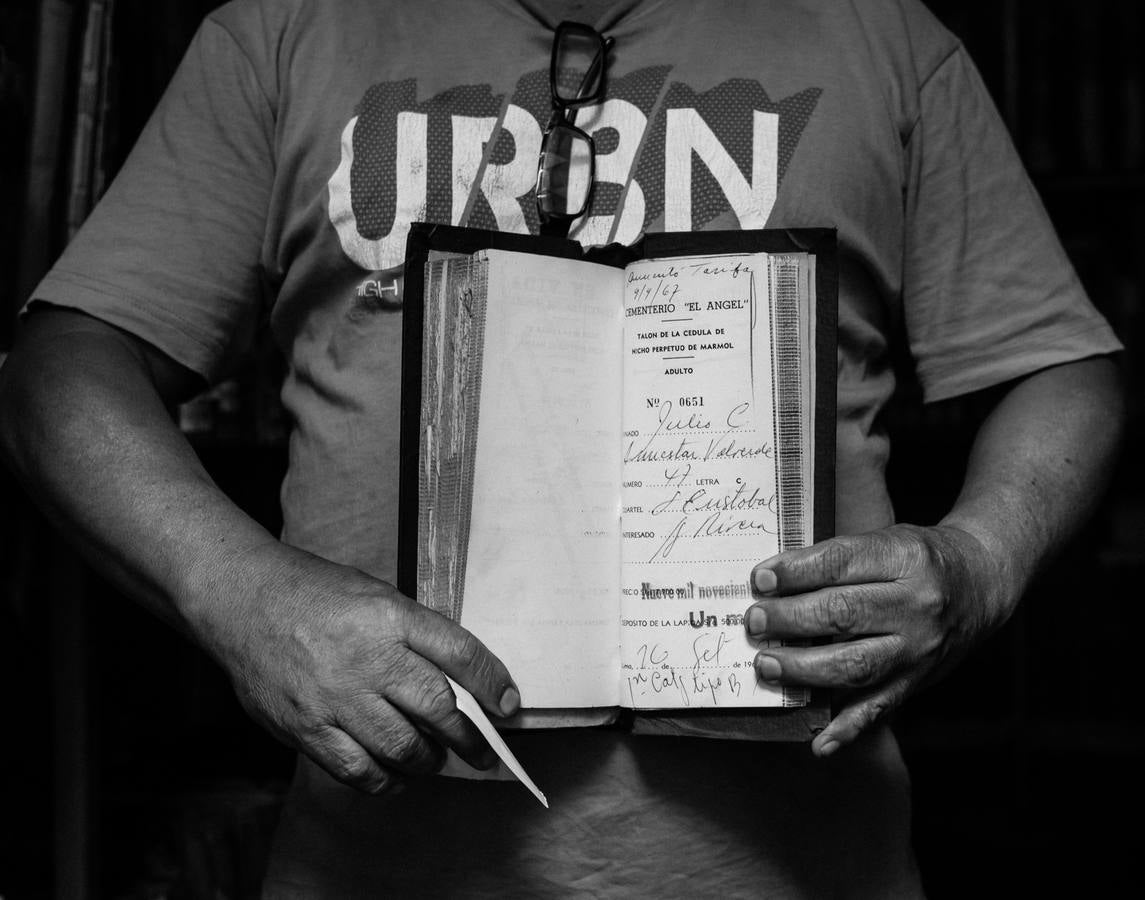 URBN
IGH
Aumentó Tarifa
9/9/67
CEMENTERIO "EL ANGEL"
TALON DE LA CEDULA DE
NICHO PERPETUO DE MARMOL
ADULTO
Nº 0651
NADO Julio C.
Valverde
UMERO 47 LETRA C
UARTEL S. Cristobal
NTERESADO J. Rivera
RECIO Nueve mil novecient
EPOSITO DE LA LAPIDA S/. 500.00 Un m
ma, 26 de Set de 196
1ª Cat tipo B